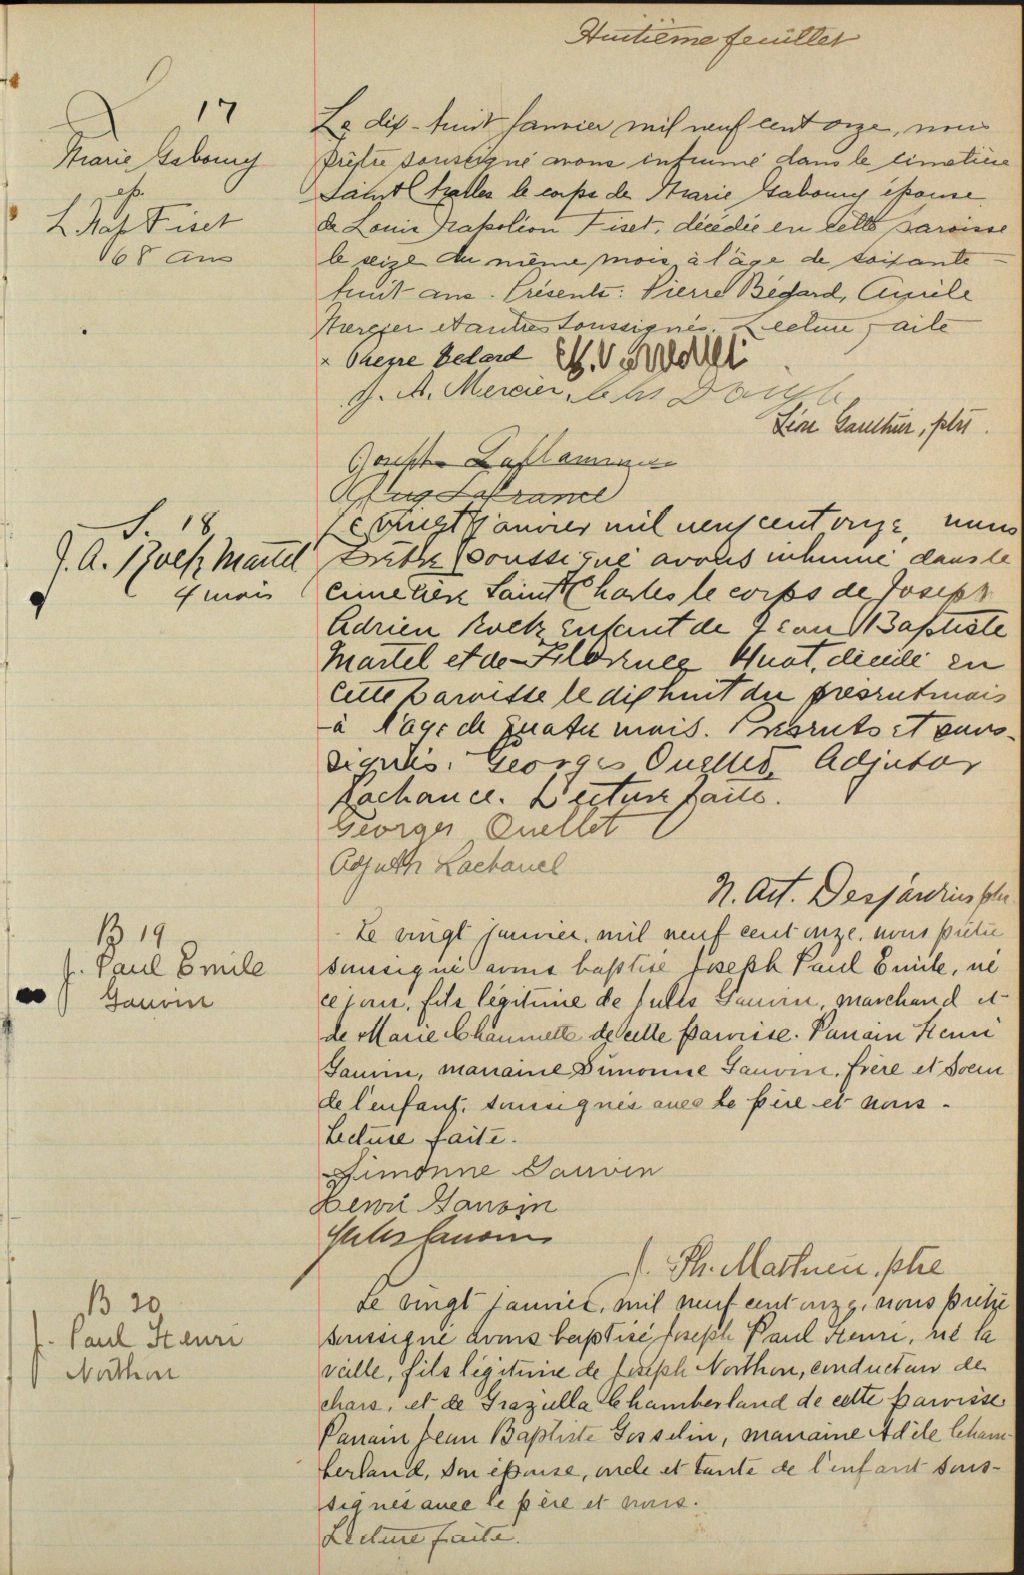 Huitième feuillet
17
Marie Gaboury
ép.
L Nap Fiset
68 ans
Le dix-huit Janvier mil neuf cent onze, nous
prêtre soussigné avons inhumé dans le cimetière
Saint Charles le corps de Marie Gaboury épouse
de Louis Napoléon Fiset, décédée en cette paroisse
le seize du même mois à l'âge de soixante-
huit ans. Présents: Pierre Bédard, Aurèle
Mercier et autres soussignés. Lecture faite
x Pierre Bedard
J. A. Mercier
Léon Gauthier, ptre.
Joseph Laflamme
Aug Lafrance
S. 18
J. A. Roch Martel
4 mois
Le vingt janvier mil neuf cent onze, nous
prêtre soussigné avons inhumé dans le
cimetière Saint Charles le corps de Joseph
Adrien Roch enfant de Jean Baptiste
Martel et de Florence Huot, décédé en
cette paroisse le dix huit du present mois
à l'age de quatre mois. Presents et sous-
signés. Georges Ouellet, Adjutor
Lachance. Lecture faite.
Georges Ouellet
Adjutor Lachance
N. Art. Desjardins ptre
B 19
J. Paul Emile
Gauvin
Le vingt janvier, mil neuf cent onze, nous prêtre
soussigné avons baptisé Joseph Paul Emile, né
ce jour, fils légitime de Jules Gauvin, marchand et
de Marie Chaumette de cette paroisse. Parrain Henri
Gauvin, marraine Simonne Gauvin, frère et soeur
de l'enfant, soussignés avec le père et nous.
Lecture faite.
Simonne Gauvin
Henri Gauvin
Jules Gauvin
J. Ph. Mathieu, ptre
B 20
J. Paul Henri
Northon
Le vingt janvier, mil neuf cent onze, nous prêtre
soussigné avons baptisé Joseph Paul Henri, né la
veille, fils légitime de Joseph Northon, conducteur de
chars, et de Graziella Chamberland de cette paroisse
Parrain Jean Baptiste Gosselin, marraine Adèle Cham-
berland, son épouse, oncle et tante de l'enfant sous-
signés avec le père et nous.
Lecture faite.